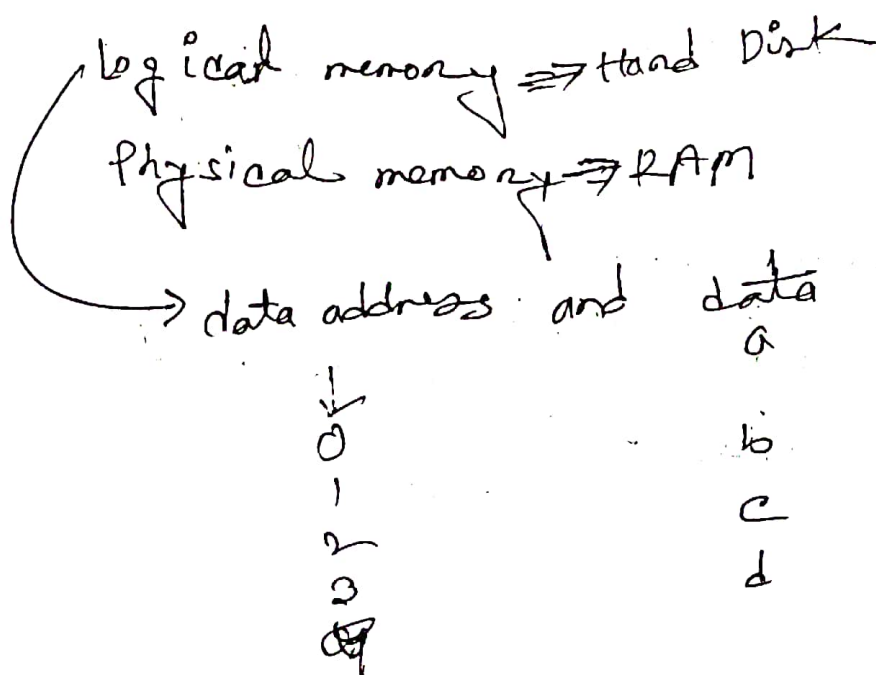 Logical memory ⇒ Hard Disk
Physical memory ⇒ RAM
data address and data
a
0 b
1 c
2 d
3